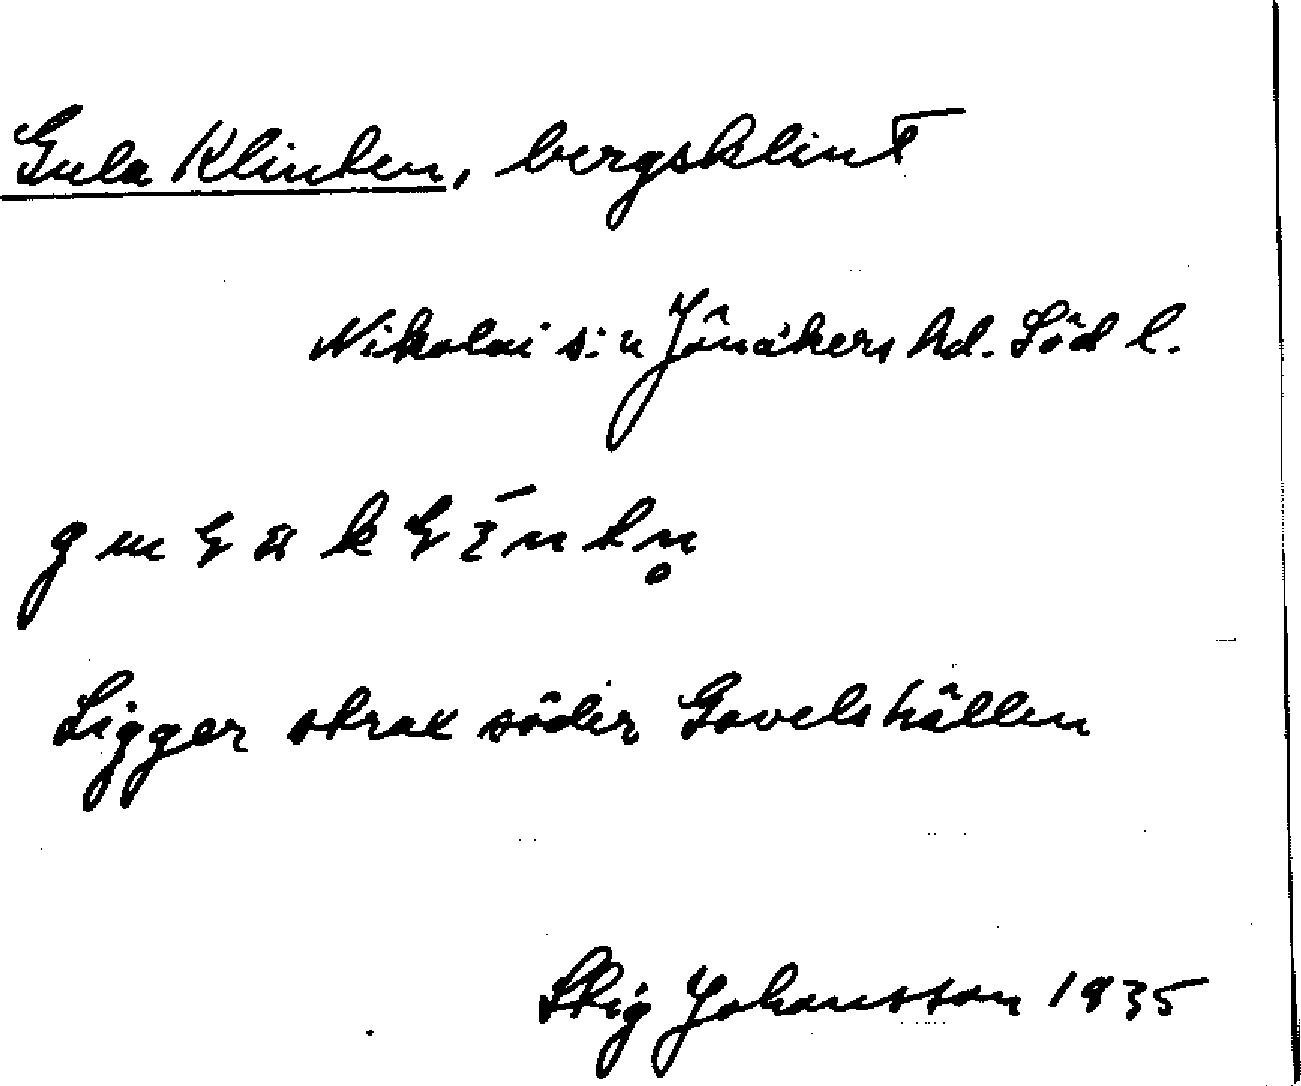 Gula Klinten, bergsklint
Nikolai s:n Jönåkers hd. Söd l.
Ligger strax söder Gavelshällen
Stig Johansson 1935